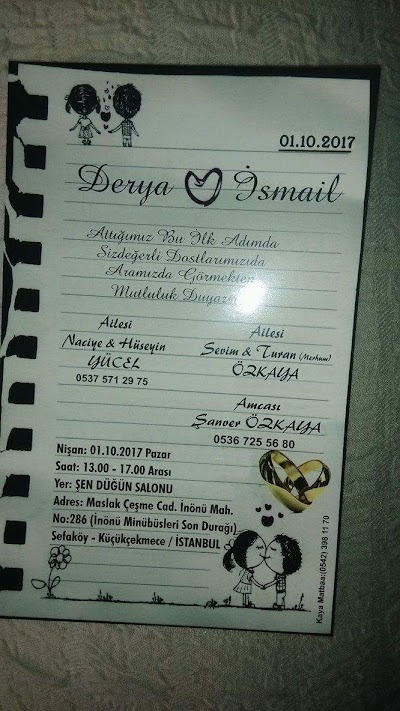 01.10.2017
Derya İsmail
Attığımız Bu İlk Adımda
Sizdeğerli Dostlarımızıda
Aramızda Görmekten
Mutluluk
Ailesi
Naciye & Hüseyin
YÜCEL
0537 571 29 75
Ailesi
Sevim & Turan (Merhum)
ÖZKAYA
Amcası
Şanver ÖZKAYA
0536 725 56 80
Nişan: 01.10.2017 Pazar
Saat: 13.00 - 17.00 Arası
Yer: ŞEN DÜĞÜN SALONU
Adres: Maslak Çeşme Cad. İnönü Mah.
No:286 (İnönü Minübüsleri Son Durağı)
Sefaköy - Küçükçekmece / İSTANBUL
Kaya Matbaa:(0542) 398 11 70